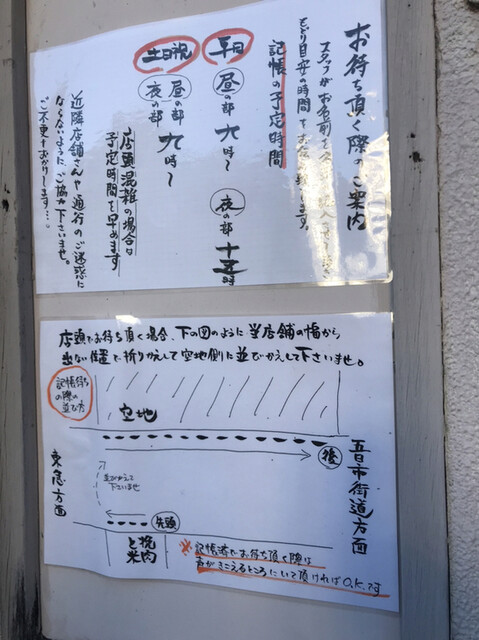 お待ち頂く際のご案内
スタッフがお名前を
もどり目安の時間を
記帳の予定時間
平日 昼の部 九時〜 夜の部 十五時
土日祝 昼の部 九時〜
夜の部
店頭混雑の場合は
予定時間を早めます
近隣店舗さんや通行のご迷惑に
ならないようにご協力下さいませ。
ご不便おかけします…。
店頭でお待ち頂く場合、下の図のように当店舗の幅から
出ない位置で折りかえして空地側に並びかえして下さいませ。
記帳待ち
の際の
並び方
空地
後
五日市街道方面
東急方面
並びかえして
下さいませ
先頭
挽肉
と米
※記帳済でお待ち頂く際は
声がきこえるところにいて頂ければO.K.です